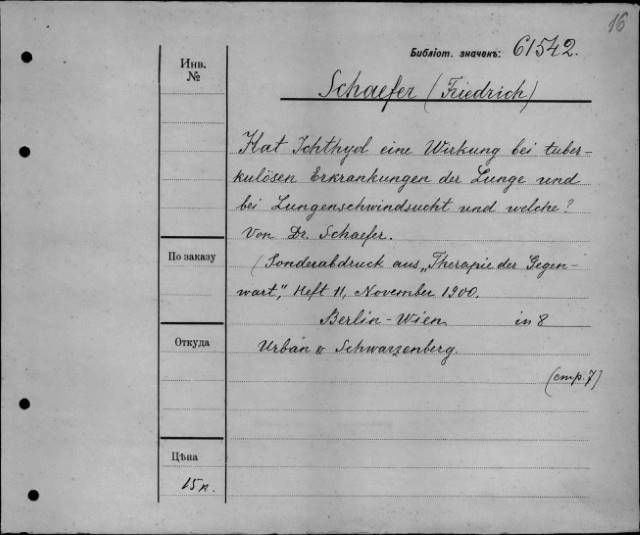 16
Библіот. значекъ: 61542.
Инв.
№
Schaefer (Friedrich)
Hat Ichthyol eine Wirkung bei tuber-
kulösen Erkrankungen der Lunge und
bei Lungenschwindsucht und welche?
Von Dr. Schaefer.
По заказу
(Sonderabdruck aus „Therapie der Gegen-
wart“, Heft 11, November 1900.
Berlin - Wien in 8
Откуда
Urban & Schwarzenberg.
(стр. 7)
Цѣна
15 к.